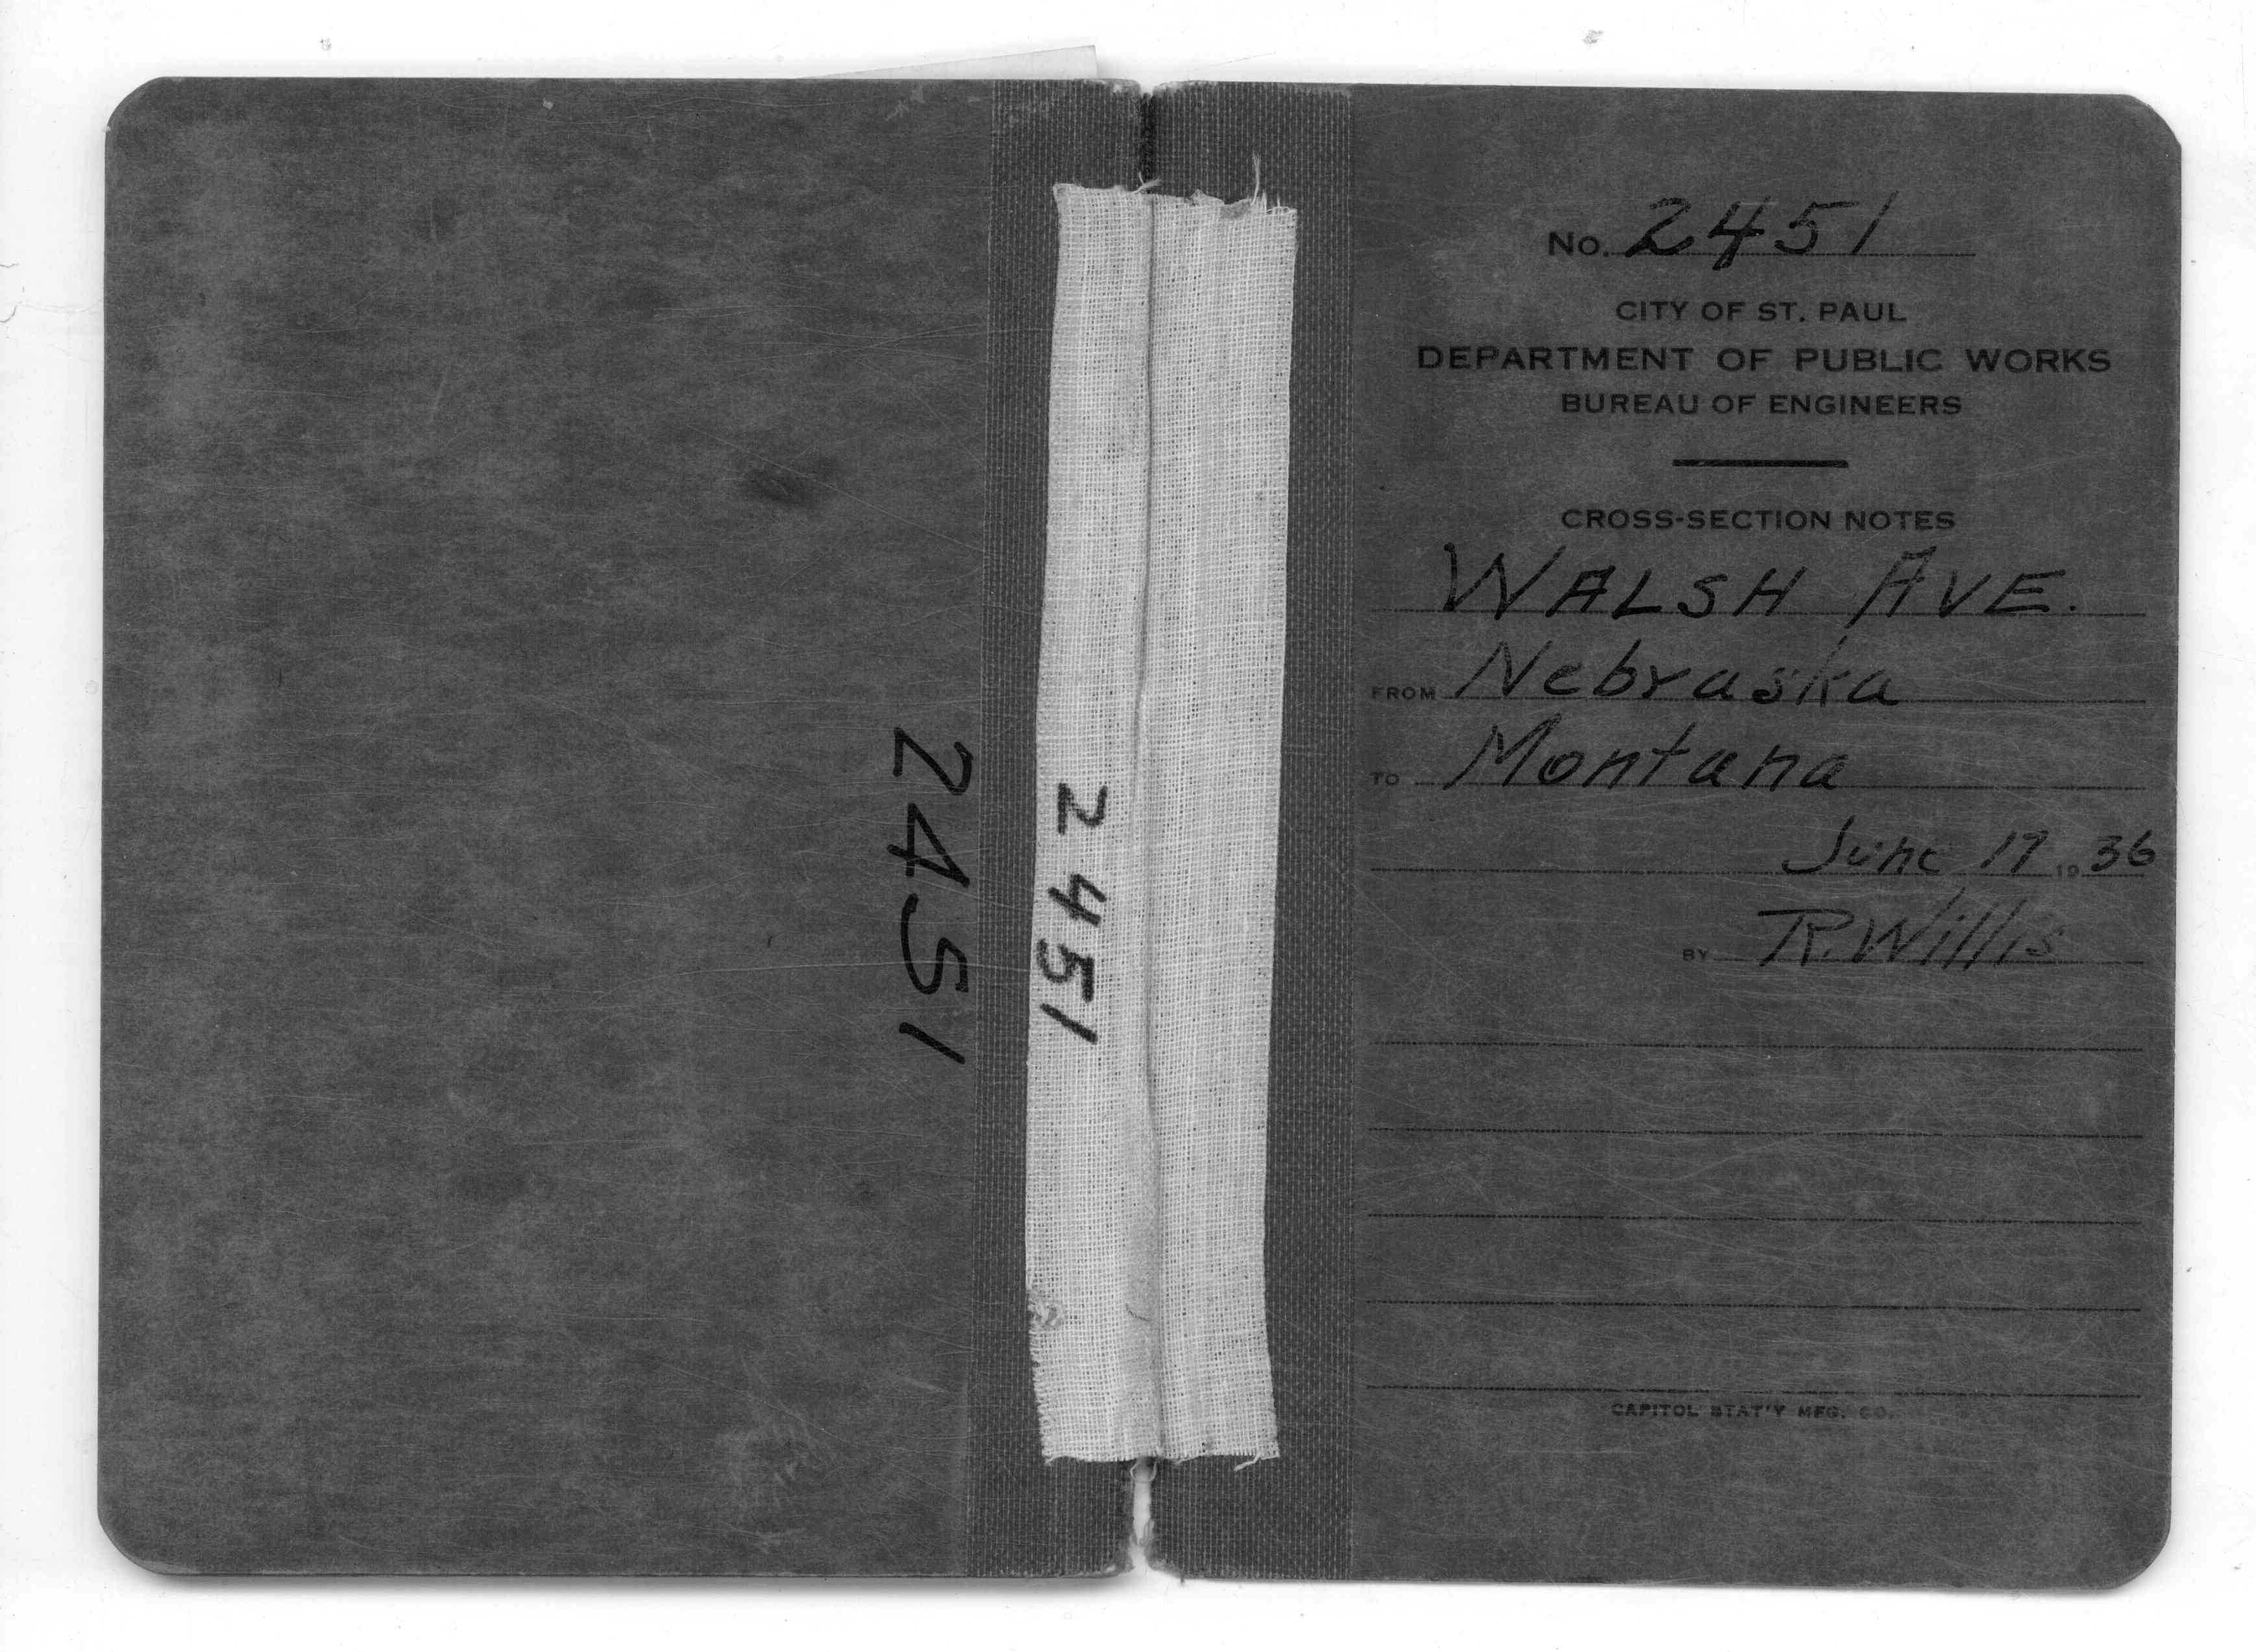 2451
2451
No. 2451
CITY OF ST. PAUL
DEPARTMENT OF PUBLIC WORKS
BUREAU OF ENGINEERS
CROSS-SECTION NOTES
WALSH AVE.
FROM Nebraska
TO Montana
June 17 1936
BY R. Willis
CAPITOL STAT'Y MFG. CO.